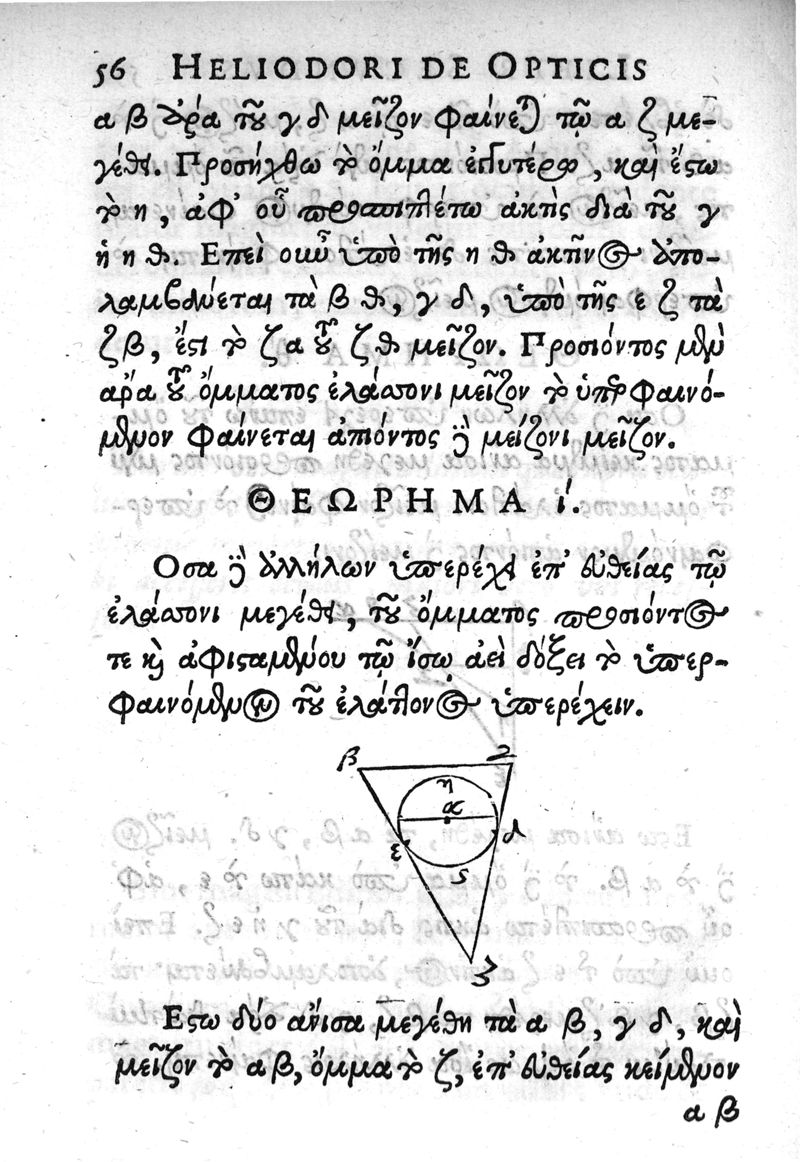 56 HELIODORI DE OPTICIS
α β ἄρα τοῦ γ δ μεῖζον φαίνεται τῷ α ζ με-
γέθει. Προσήχθω τὸ ὄμμα ἐγγυτέρω, καὶ ἔστω
τὸ η, ἀφ' οὗ προσπιπτέτω ἀκτὶς διὰ τοῦ γ
ἡ η θ. Επεὶ οὖν ὑπὸ τῆς η θ ἀκτῖνος ἀπο-
λαμβάνεται τὰ β θ, γ δ, ὑπὸ τῆς ε ζ τὰ
ζ β, ἔστι τὸ ζα τοῦ ζθ μεῖζον. Προσιόντος μὲν
ἄρα τοῦ ὄμματος ἐλάσσονι μεῖζον τὸ ὑπερφαινό-
μενον φαίνεται ἀπιόντος δὲ μείζονι μεῖζον.
ΘΕΩΡΗΜΑ ί.
Οσα δὲ ἀλλήλων ὑπερέχει ἐπ' εὐθείας τῷ
ἐλάσσονι μεγέθει, τοῦ ὄμματος προσιόντος
τε καὶ ἀφισταμένου τῷ ἴσῳ ἀεὶ δόξει τὸ ὑπερ-
φαινόμενον τοῦ ἐλάττονος ὑπερέχειν.
β Ζ
η
α
ε δ
ς
ζ
Εστω δύο ἄνισα μεγέθη τὰ α β, γ δ, καὶ
μεῖζον τὸ α β, ὄμμα τὸ ζ, ἐπ' εὐθείας κείμενον
α β